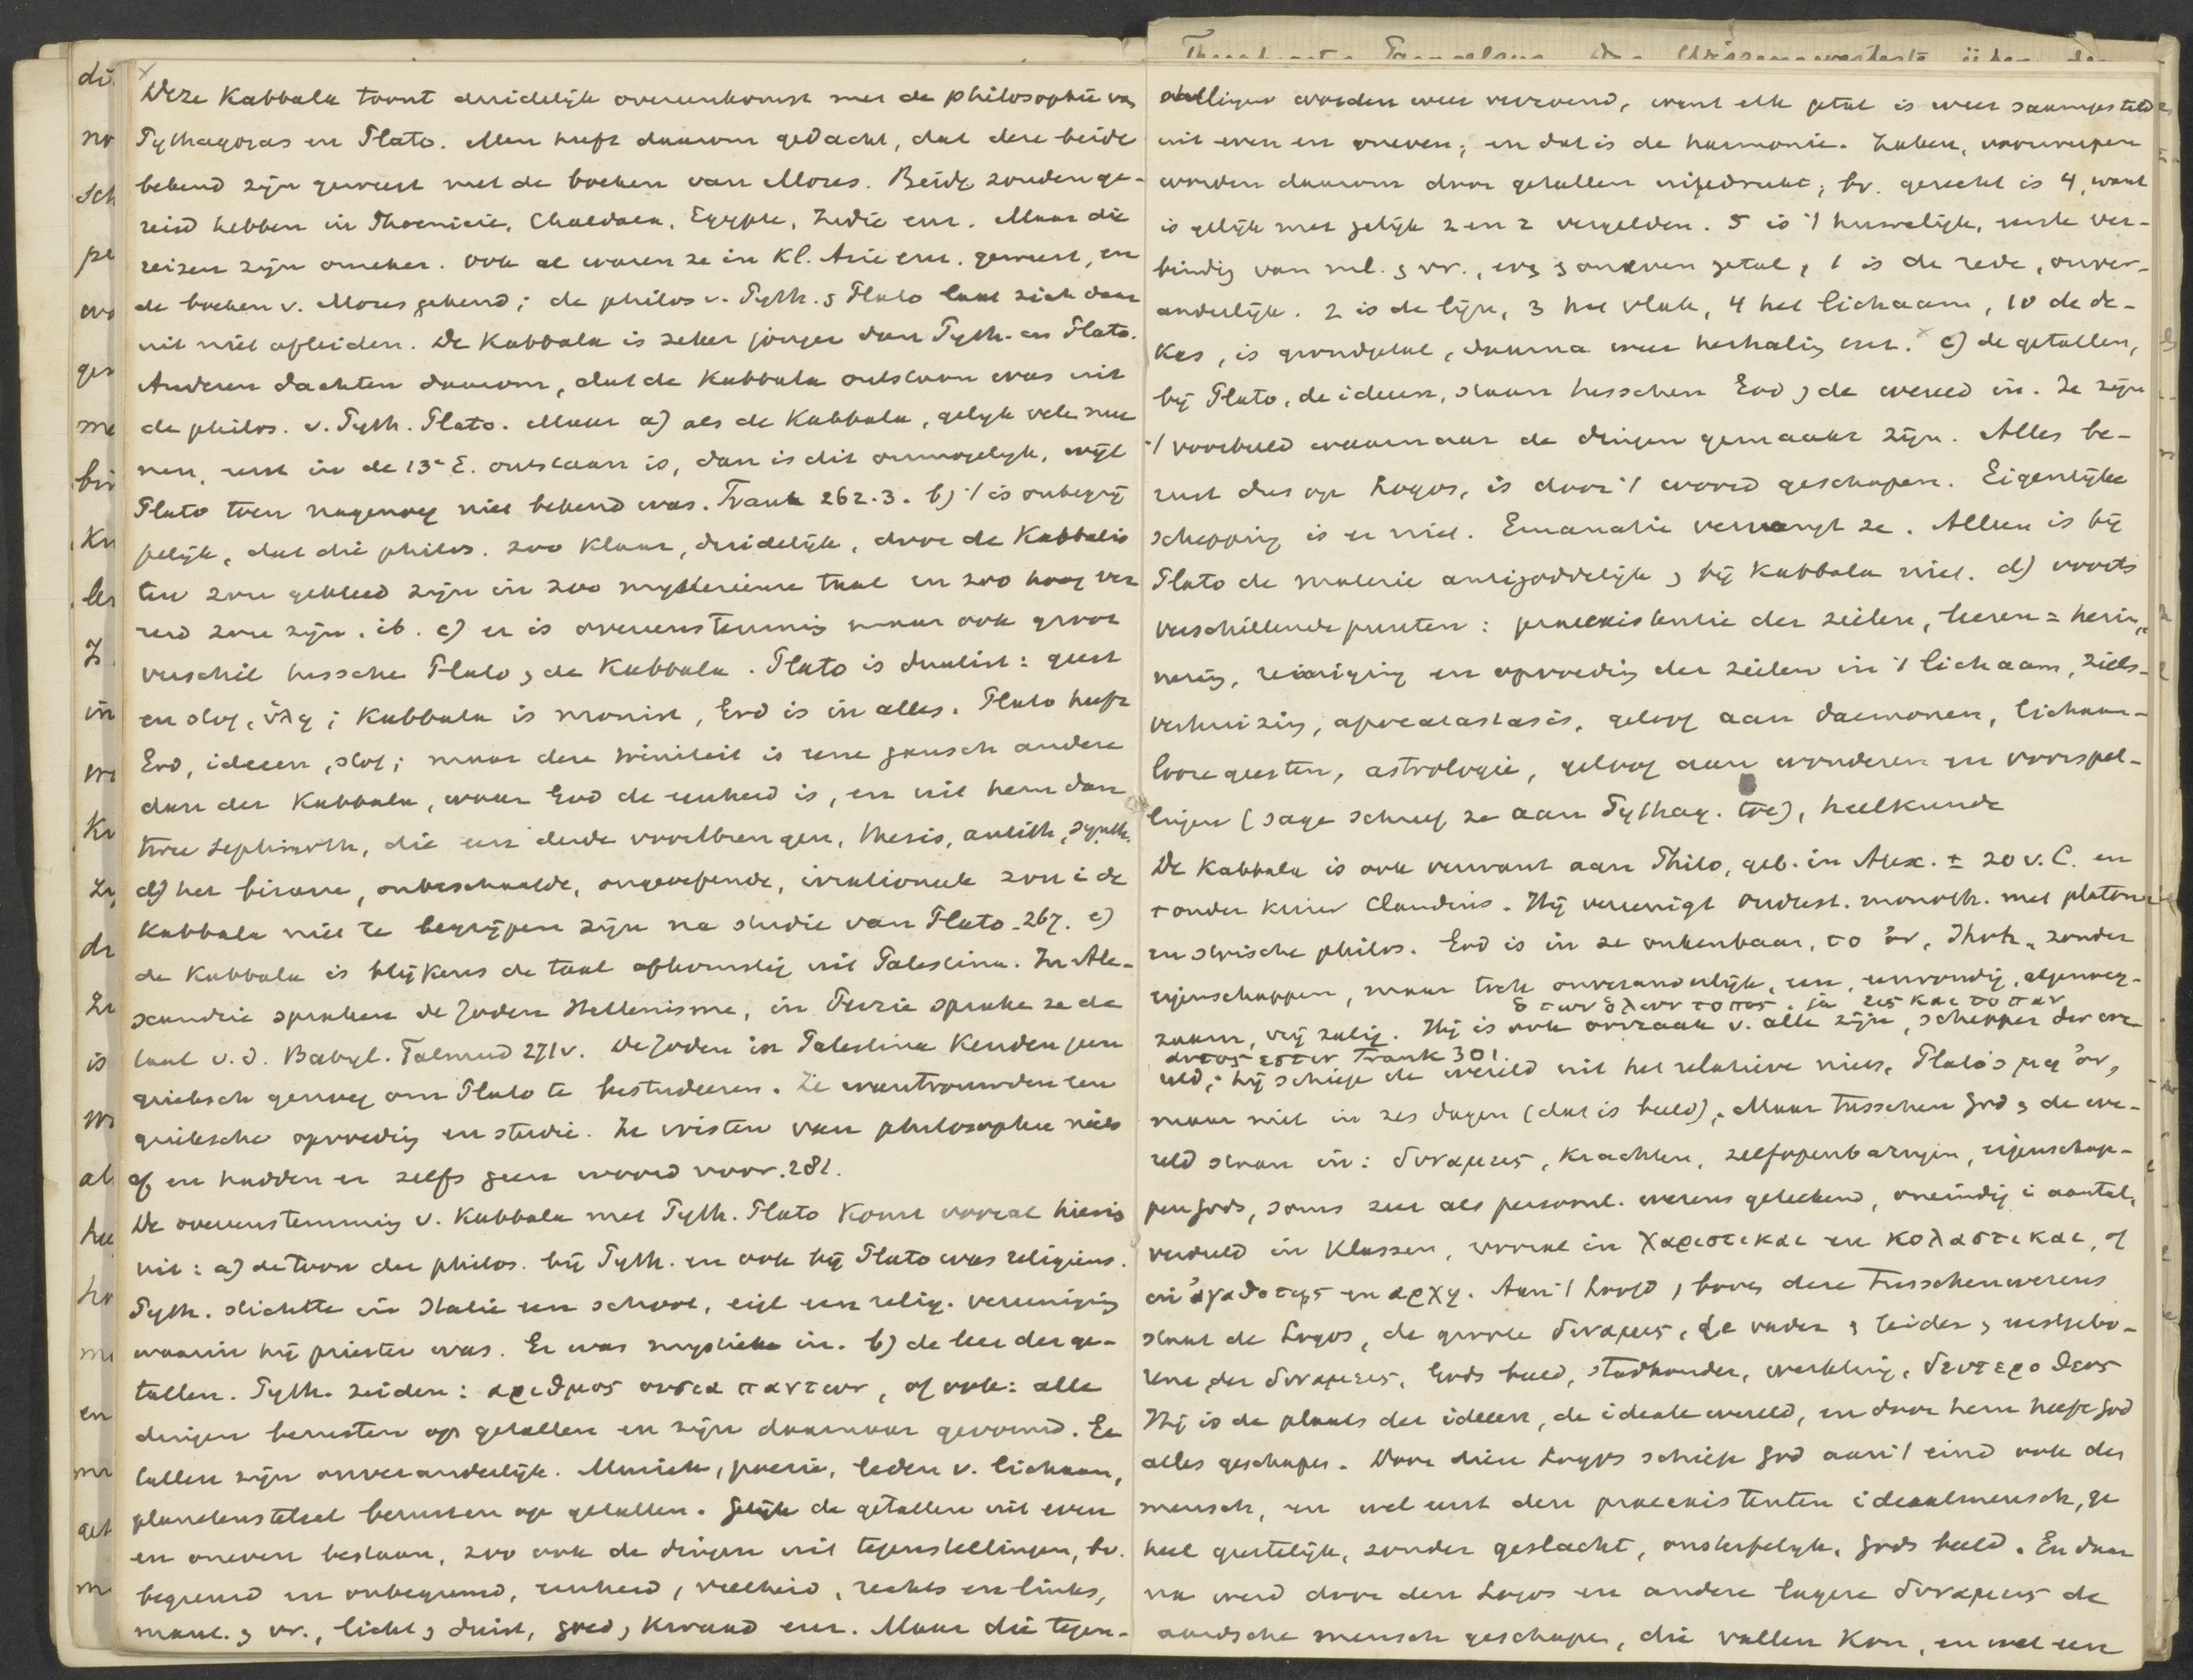 Deze Kabbala toont duidelijk overeenkomst met de philosophie va
Pythagoras en Plato. Men heeft daarom gedacht, dat deze beide
bekend zijn geweest met de boeken van Mozes. Beide zouden ge-
reisd hebben in Phoenicië, Chaldaea, Egypte, Indië enz. Maar die
reizen zijn onzeker. Ook al waren ze in Kl. Azië enz. geweest, en
de boeken v. Mozes gekend; de philos. v. Pyth. & Plato laat zich daar
uit niet afleiden. De Kabbala is zeker jonger dan Pyth. en Plato.
Anderen dachten daarom, dat de Kabbala ontstaan was uit
de philos. v. Pyth. Plato. Maar a) als de Kabbala, gelijk vele mee
nen, eerst in de 13e E. ontstaan is, dan is dit onmogelijk, wijl
Plato toen nagenoeg niet bekend was. Frank 262.3. b) 't is onbegrij
pelijk, dat die philos. zoo klaar, duidelijk, door de Kabbalis
ten zou gekleed zijn in zoo mysterieuse taal en zoo hoog ver
eerd zou zijn. ib. c) er is overeenstemming maar ook groot
verschil tussche Plato & de Kabbala. Plato is dualist: geest
en stof, ὑλη; Kabbala is monist, God is in alles. Plato heeft
God, ideeen, stof; maar deze triniteit is eene gansch andere
dan der Kabbala, waar God de eenheid is, en uit hem dan
twee Sephiroth, die een derde voortbrengen, thesis, antith, synth.
d) het bizarre, onbeschaafde, ongeoefende, irrationeele zou i de
Kabbala niet te begrijpen zijn na studie van Plato. 267. e)
de Kabbala is blijkens de taal afkomstig uit Palestina. In Ale-
xandrië spraken de Joden Hellenisme, in Perzie sprake ze de
taal v. d. Babyl. Talmud 271v. De Joden in Palestina kenden geen
grieksch genoeg om Plato te bestudeeren. Ze wantrouwden een
grieksche opvoeding en studie. Ze wisten van philosophie niets
af en hadden er zelfs geen woord voor. 281.
De overeenstemming v. Kabbala met Pyth. Plato komt vooral hierin
uit: a) de toon der philos. bij Pyth. en ook bij Plato was religieus.
Pyth. stichtte in Italië een school, eigl een relig. vereeniging
waarin hij priester was. Er was mystieke in. b) de leer der ge-
tallen. Pyth. zeiden: αριθμος ουσια παντων, of ook: alle
dingen berusten op getallen en zijn daarnaar gevormd. Ge
tallen zijn onveranderlijk. Muziek, poezie, leden v. lichaam,
planetenstelsel berusten op getallen. Gelijk de getallen uit even
en oneven bestaan, zoo ook de dingen uit tegenstellingen, bv.
begrensd en onbegrensd, eenheid, veelheid, rechts en links,
mannl. & vr., licht & duist, goed, kwaad enz. Maar die tegen-
stellingen worden weer verzoend, want elk getal is weer saamgesteld
uit even en oneven; en dat is de harmonie. Zaken, voorwerpen
worden daarom door getallen uitgedrukt; bv. gerecht is 4, want
is gelijk met gelijk 2 en 2 vergelden. 5 is 't huwelijk, eerste ver-
binding van ml. & vr., even & oneven getal, 1 is de rede, onver-
anderlijk. 2 is de lijn, 3 het vlak, 4 het lichaam, 10 de de-
kas, is grondgetal, daarna weer herhaling enz. c) de getallen,
bij Plato, de ideeen, staan tusschen God & de wereld in. Ze zijn
't voorbeeld waarnaar de dingen gemaakt zijn. Alles be-
rust dus op Logos, is door 't woord geschapen. Eigenlijke
schepping is er niet. Emanatie vervangt ze. Alleen is bij
Plato de materie antigoddelijk & bij Kabbala niet. d) voorts
verschillende punten: praeexistentie der zielen, leeren = herin-
nering, reiniging en opvoeding der zielen in 't lichaam, ziels-
verhuizing, apocatastasis, geloof aan daemonen, lichaam-
looze geesten, astrologie, geloof aan wonderen en voorspel-
lingen (sage schreef ze aan Pythag. toe), heelkunde
De Kabbala is ook verwant aan Philo, geb. in Alex. ± 20 v. C. en
† onder keizer Claudius. Hij vereenigt oudtest. monoth. met platon.
en stoische philos. God is in ze onkenbaar, το ὀν, Jhvh, zonder
eigenschappen, maar toch onveranderlijk, een, eenvoudig, algenoeg-
zaam, vrij zalig. Hij is ook oorzaak v. alle zijn, schepper der we-
ὁ των ὁλων τοπος. ja εις και το παν
αυτος εστιν Frank 301.
reld; hij schiep de wereld uit het relatieve niets, Plato's μη ὀν,
maar niet in zes dagen (dat is beeld). Maar tusschen God & de we-
reld staan in: δυναμεις, krachten, zelfopenbaringen, eigenschap-
pen Gods, soms zeer als persoonl. wezens geteekend, oneindig i aantal,
verdeeld in klassen, vooral in χαριστικαι en κολαστικαι, of
in ἀγαθοτης en αρχη. Aan 't hoofd & boven deze Tusschenwezens
staat de Logos, de groote δυναμις, de vader & leider & eerstgebo-
rene der δυναμεις, Gods beeld, stadhouder, werktuig, δευτερο θεος
Hij is de plaats der ideeen, de ideale wereld, en door hem heeft God
alles geschapen. Door dien Logos schiep God aan 't eind ook den
mensch, en wel eerst den praeexistenten ideaalmensch, ge
heel geestelijk, zonder geslacht, onsterfelijk, Gods beeld. En daar
na werd door den Logos en andere lagere δυναμεις de
aardsche mensch geschapen, die vallen kon, en wel een